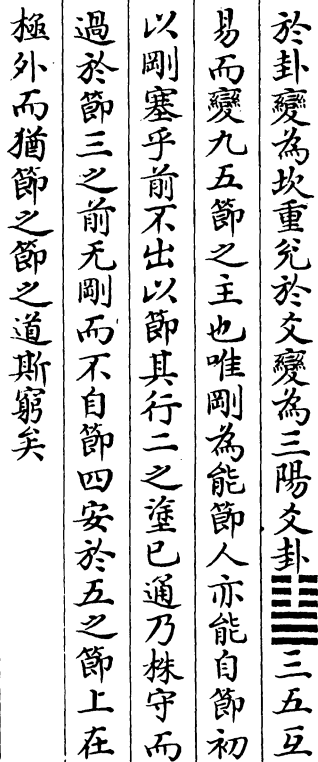 於卦變為坎重兊於爻變為三陽爻卦䷻三五互
易而變九五節之主也唯剛為能節人亦能自節初
以剛塞乎前不出以節其行二之塗已通乃株守而
過於節三之前无剛而不自節四安於五之節上在
極外而猶節之節之道斯窮矣